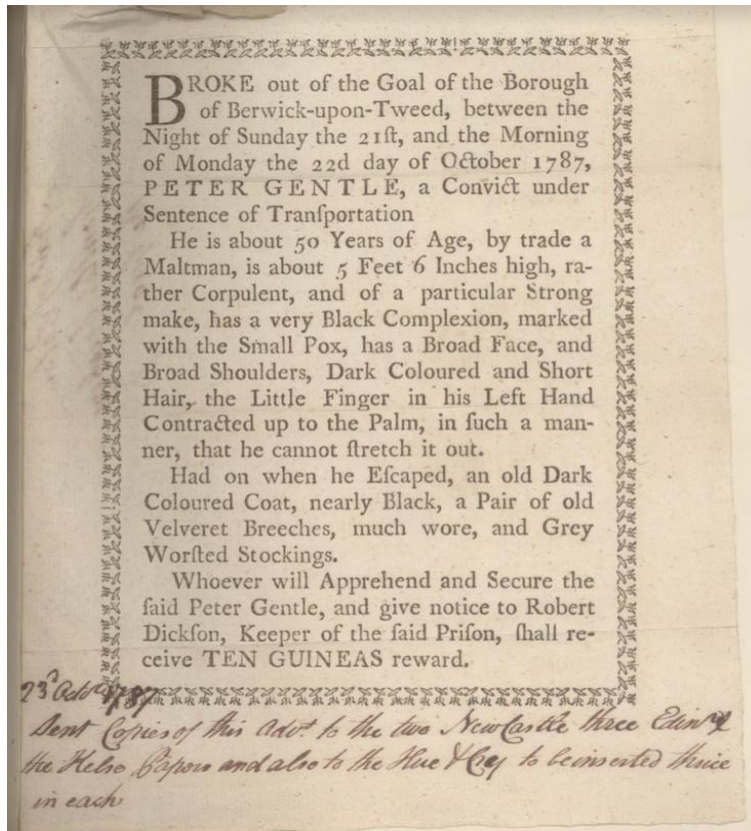 BROKE out of the Goal of the Borough
of Berwick-upon-Tweed, between the
Night of Sunday the 21ſt, and the Morning
of Monday the 22d day of October 1787,
PETER GENTLE, a Convict under
Sentence of Tranſportation
He is about 50 Years of Age, by trade a
Maltman, is about 5 Feet 6 Inches high, ra-
ther Corpulent, and of a particular Strong
make, has a very Black Complexion, marked
with the Small Pox, has a Broad Face, and
Broad Shoulders, Dark Coloured and Short
Hair, the Little Finger in his Left Hand
Contracted up to the Palm, in ſuch a man-
ner, that he cannot ſtretch it out.
Had on when he Eſcaped, an old Dark
Coloured Coat, nearly Black, a Pair of old
Velveret Breeches, much wore, and Grey
Worſted Stockings.
Whoever will Apprehend and Secure the
ſaid Peter Gentle, and give notice to Robert
Dickſon, Keeper of the ſaid Priſon, ſhall re-
ceive TEN GUINEAS reward.
23d Octr 1787
Sent Copies of this Advt. to the two NewCastle three Edinr &
the Kelso Papers and also to the Hue & Cry to be inserted thrice
in each